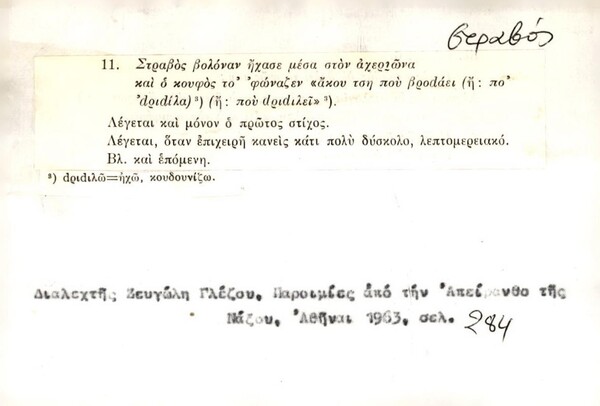 στραβός
11. Στραβὸς βολόναν ἤχασε μέσα στὸν ἀχεριῶνα
καὶ ὁ κουφὸς το' 'φώναζεν «ἄκου τση ποὺ βροdάει (ἤ: πο'
'dριdίλα) ³) (ἤ: ποὺ dριdιλεῖ» ³).
Λέγεται καὶ μόνον ὁ πρῶτος στίχος.
Λέγεται, ὅταν ἐπιχειρῇ κανεὶς κάτι πολὺ δύσκολο, λεπτομερειακό.
Βλ. καὶ ἑπόμενη.
³) dριdιλῶ=ἠχῶ, κουδουνίζω.
Διαλεχτῆς Ζευγώλη Γλέζου, Παροιμίες ἀπό τήν Ἀπείρανθο τῆς
Νάξου, Ἀθῆναι 1963, σελ. 284